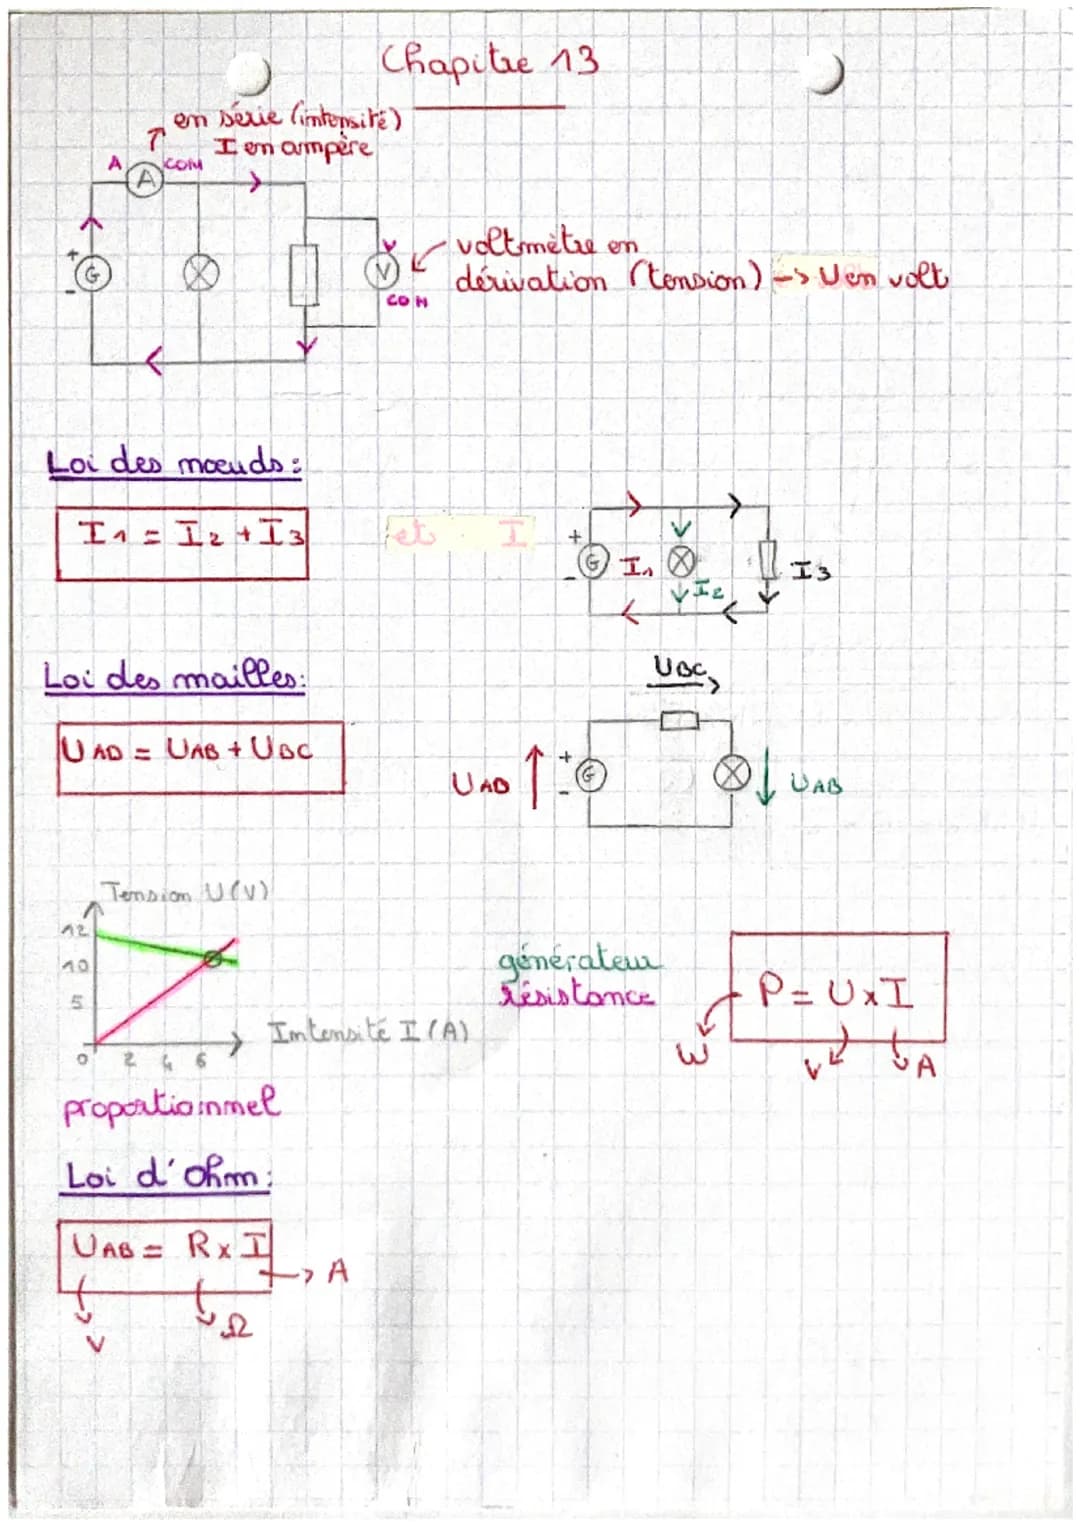 Chapitre 13
en série (intensité)
I en ampère
A
COM
A
+
G
-
V
COM
voltmètre en
dérivation (tension) -> U en volt
Loi des nœuds :
I1 = I2 + I3
et I
+
G
-
I1
I2
I3
Loi des mailles :
UAD = UAB + UBC
UBC
UAD
+
G
-
UAB
Tension U (V)
12
10
5
0 2 4 6
Intensité I (A)
générateur
résistance
P = U x I
W
V
A
proportionnel
Loi d'ohm :
UAB = R x I
-> A
V
Ω